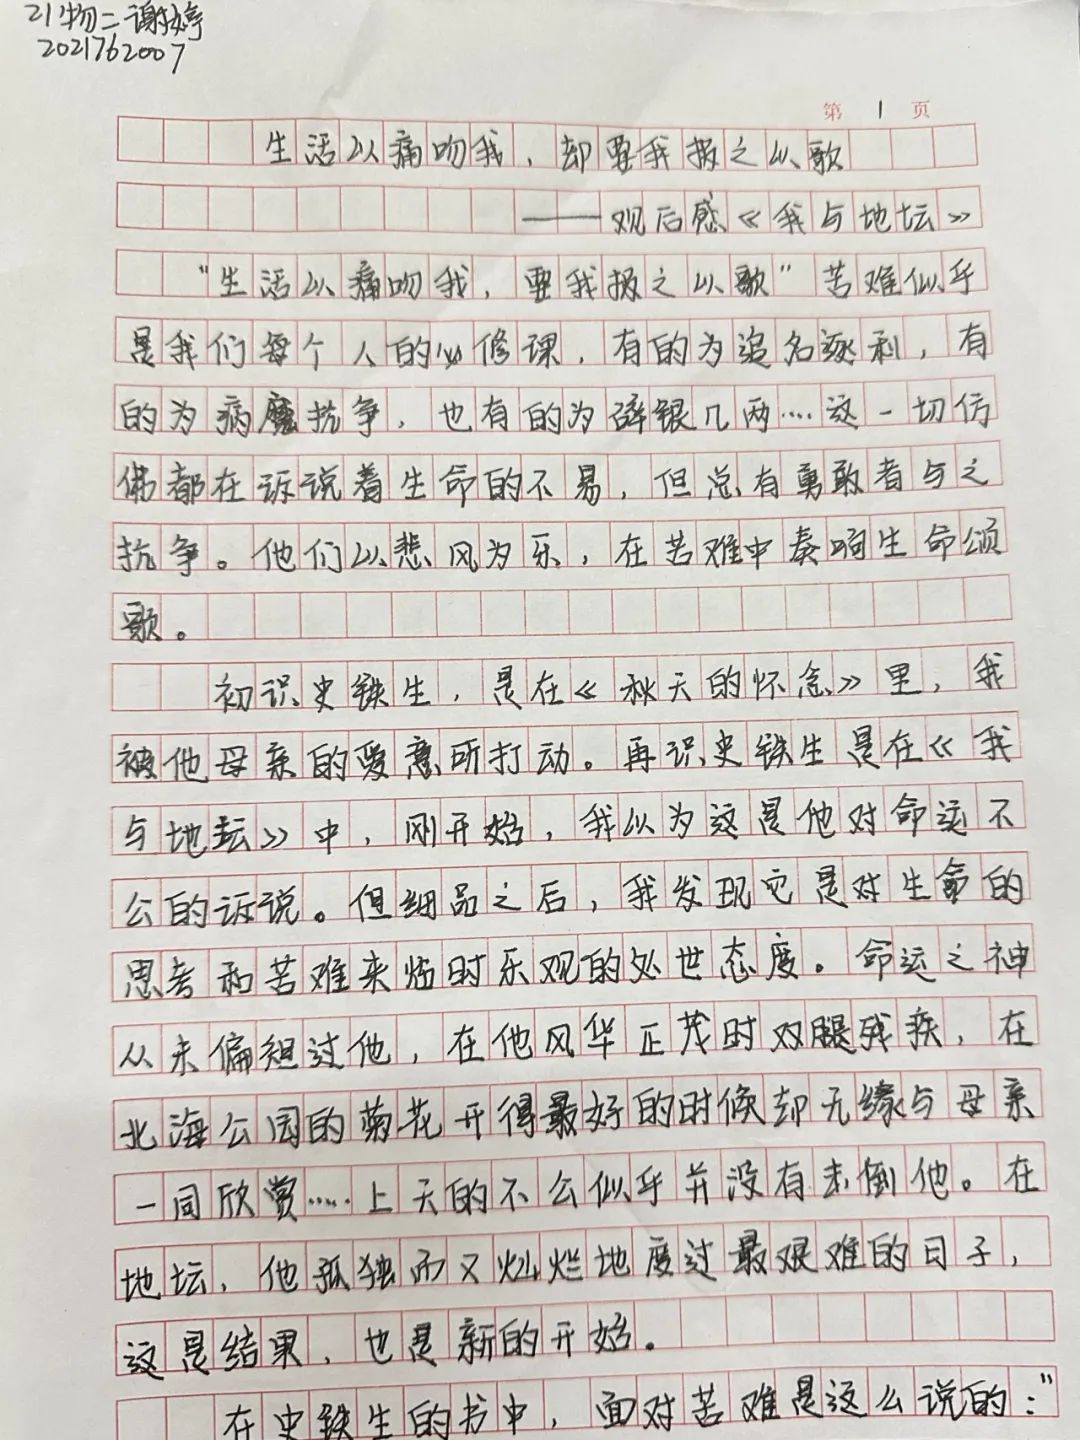 21物二谢婷
2021762007
第 1 页
生活以痛吻我，却要我报之以歌
——观后感《我与地坛》
“生活以痛吻我，要我报之以歌”苦难似乎
是我们每个人的必修课，有的为追名逐利，有
的为病魔抗争，也有的为碎银几两……这一切仿
佛都在诉说着生命的不易，但总有勇敢者与之
抗争。他们以悲风为乐，在苦难中奏响生命颂
歌。
初识史铁生，是在《秋天的怀念》里，我
被他母亲的爱意所打动。再识史铁生是在《我
与地坛》中，刚开始，我以为这是他对命运不
公的诉说。但细品之后，我发现它是对生命的
思考和苦难来临时乐观的处世态度。命运之神
从未偏袒过他，在他风华正茂时双腿残疾，在
北海公园的菊花开得最好的时候却无缘与母亲
一同欣赏……上天的不公似乎并没有击倒他。在
地坛，他孤独而又灿烂地度过最艰难的日子，
这是结果，也是新的开始。
在史铁生的书中，面对苦难是这么说的：“